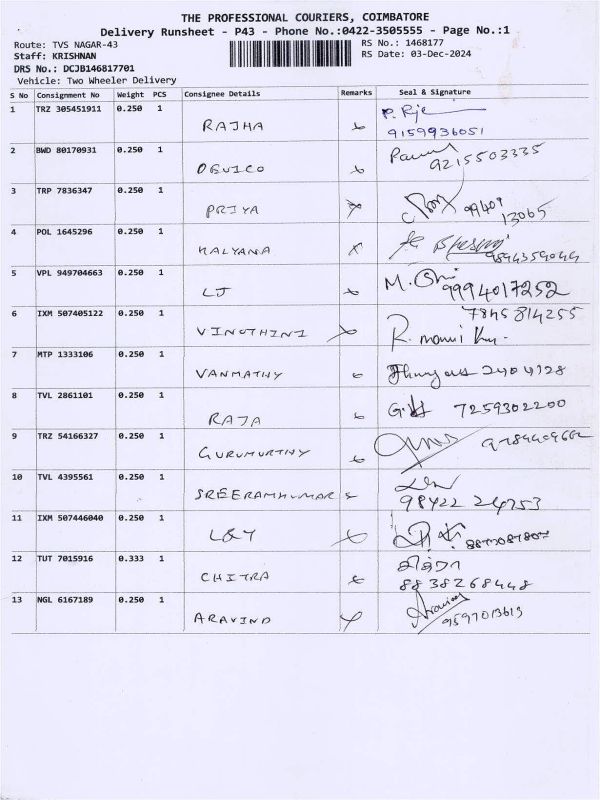 THE PROFESSIONAL COURIERS, COIMBATORE
Delivery Runsheet - P43 - Phone No.:0422-3505555 - Page No.:1
Route: TVS NAGAR-43 RS No.: 1468177
Staff: KRISHNAN RS Date: 03-Dec-2024
DRS No.: DCJB146817701
Vehicle: Two Wheeler Delivery
S No Consignment No Weight PCS Consignee Details Remarks Seal & Signature
1 TRZ 305451911 0.250 1
RAJHA 9159936051
2 BWD 80170931 0.250 1
OGUICO 9215503335
3 TRP 7836347 0.250 1
PRIYA 99409
13065
4 POL 1645296 0.250 1
KALYANA
5 VPL 949704663 0.250 1
LJ 9994017252
6 IXM 507405122 0.250 1 7845814255
VINOTHINI
7 MTP 1333106 0.250 1
VANMATHY
8 TVL 2861101 0.250 1
RAJA 7259302200
9 TRZ 54166327 0.250 1
GURUMURTHY
10 TVL 4395561 0.250 1
SREERAMKUMAR 98422 24753
11 IXM 507446040 0.250 1
L&T
12 TUT 7015916 0.333 1 சித்ரா
CHITRA 8838268448
13 NGL 6167189 0.250 1 Aravind
ARAVIND 9597013613